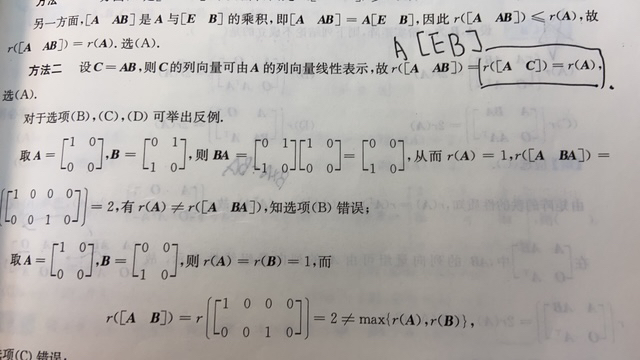 方法一
另一方面,[A AB]是A与[E B]的乘积,即[A AB]=A[E B],因此r([A AB])≤r(A),故
r([A AB])=r(A).选(A).
A [E B]
方法二 设C=AB,则C的列向量可由A的列向量线性表示,故r([A AB])=r([A C])=r(A),
选(A).
对于选项(B),(C),(D)可举出反例.
取A=[1 0; 0 0],B=[0 1; 1 0],则BA=[0 1; 1 0][1 0; 0 0]=[0 0; 1 0],从而r(A)=1,r([A BA])=
[1 0 0 0; 0 0 1 0])=2,有r(A)≠r([A BA]),知选项(B)错误;
取A=[1 0; 0 0],B=[0 0; 1 0],则r(A)=r(B)=1,而
r([A B])=r([1 0 0 0; 0 0 1 0])=2≠max{r(A),r(B)},
选项(C)错误.